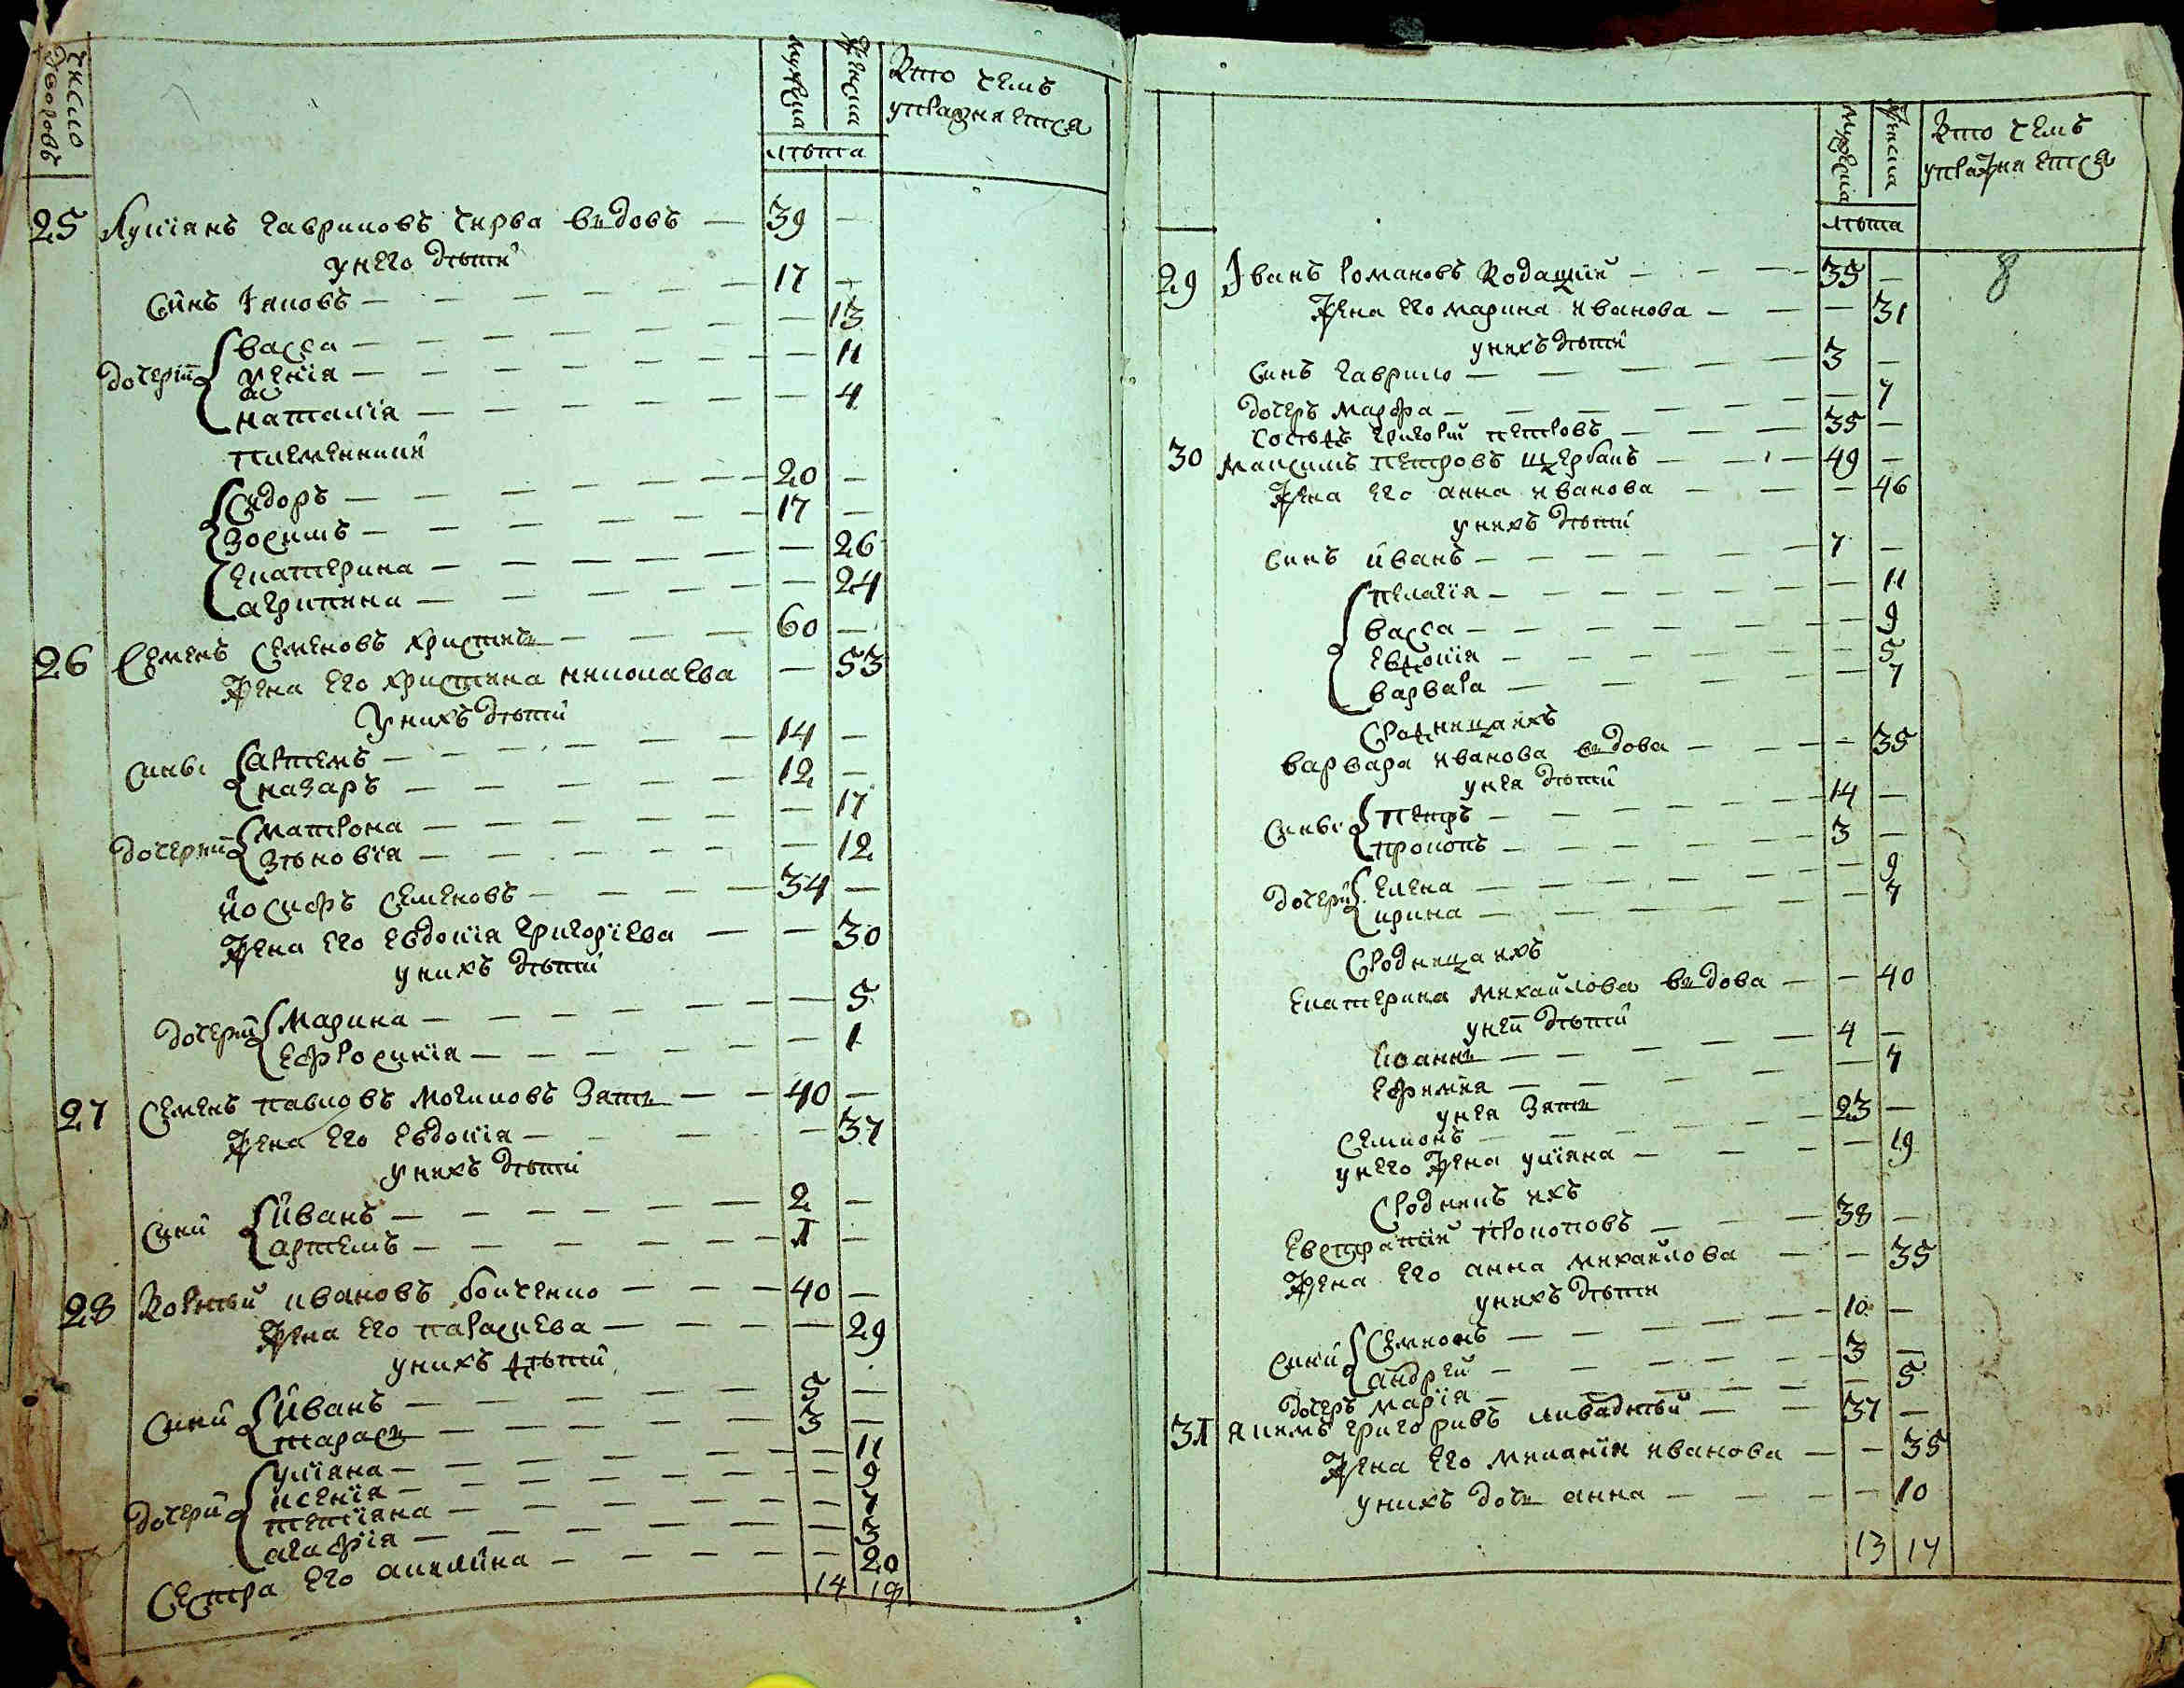 число дворовъ
мужеска
женска
Кто чемъ
упражняется
лѣта
25 Лукіянъ Гавриловъ Чирва вдовъ — 39 —
у него дѣти
Синъ Яковъ — 17 —
дочерій
васса — 13
Ксенія — 11
наталія — 4
племенники
Сидоръ — 20 —
Зосимъ — 17 —
Екатерина — 26
агрипина — 24
26 Семенъ Семеновъ — 60 —
Жена его христина николаева — 53
У нихъ дѣти
Сины
артемъ — 14 —
назаръ — 12 —
дочерий
матрона — 17
зѣновія — 12
йосифъ Семеновъ — 34 —
Жена его Евдокія григоріева — 30
у нихъ дѣти
дочерий
Марина — 5
Ефросинія — 1
27 Семенъ павловъ Могиловъ Зять — 40 —
Жена его Евдокія — 37
у нихъ дѣти
Сини
йванъ — 2 —
артемъ — 1 —
28 Корнѣй ивановъ бойченко — 40 —
Жена его параскева — 29
у нихъ дѣти
Сини
йванъ — 5 —
тарасъ — 3 —
дочерий
уліяна — 11
ксенія — 9
тетіяна — 7
агафія — 3
Сестра его акилина — 20
14 19
мужеска
женска
Кто чемъ
упражняется
лѣта
8
29 Іванъ романовъ Кодацкій — 35 —
Жена его марина иванова — 31
у нихъ дѣти
Синъ гаврило — 3 —
дочеръ марфа — 7
Сосѣдъ григорий петровъ — 35 —
30 Максимъ петровъ щербакъ — 49 —
Жена его анна иванова — 46
у нихъ дѣти
Синъ йванъ — 7 —
пелагія — 11
васса — 9
Евдокія — 5
варвара — 7
Сродница ихъ
варвара иванова вдова — 35
у нея дѣти
Сины
петръ — 14 —
прокопъ — 3 —
дочерий
Елена — 9
ирина — 7
Сродница ихъ
Екатерина михайлова вдова — 40
у ней дѣти
Иоаннъ — 4 —
Ефимія — 7
у нея зять
Семионъ — 23 —
у него Жена уліяна — 19
Сродникъ ихъ
Евстратій прокоповъ — 38 —
Жена его анна михайлова — 35
у нихъ дѣти
Сини
Семионъ — 10 —
андрей — 3 —
дочеръ марія — 5
31 Якимъ григоривъ — 37 —
Жена его меланія иванова — 35
у нихъ дочъ анна — 10
13 17